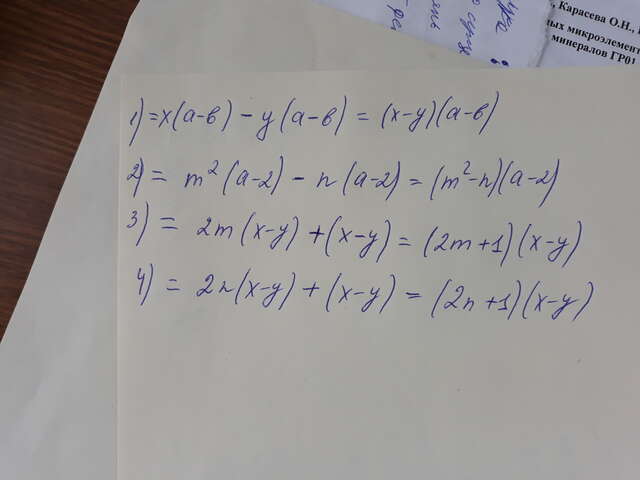 1) = x(a-b) - y(a-b) = (x-y)(a-b)
2) = m²(a-2) - n(a-2) = (m²-n)(a-2)
3) = 2m(x-y) + (x-y) = (2m+1)(x-y)
4) = 2n(x-y) + (x-y) = (2n+1)(x-y)
Карасева О.Н.
ных микроэлемен
минералов ГРОТ